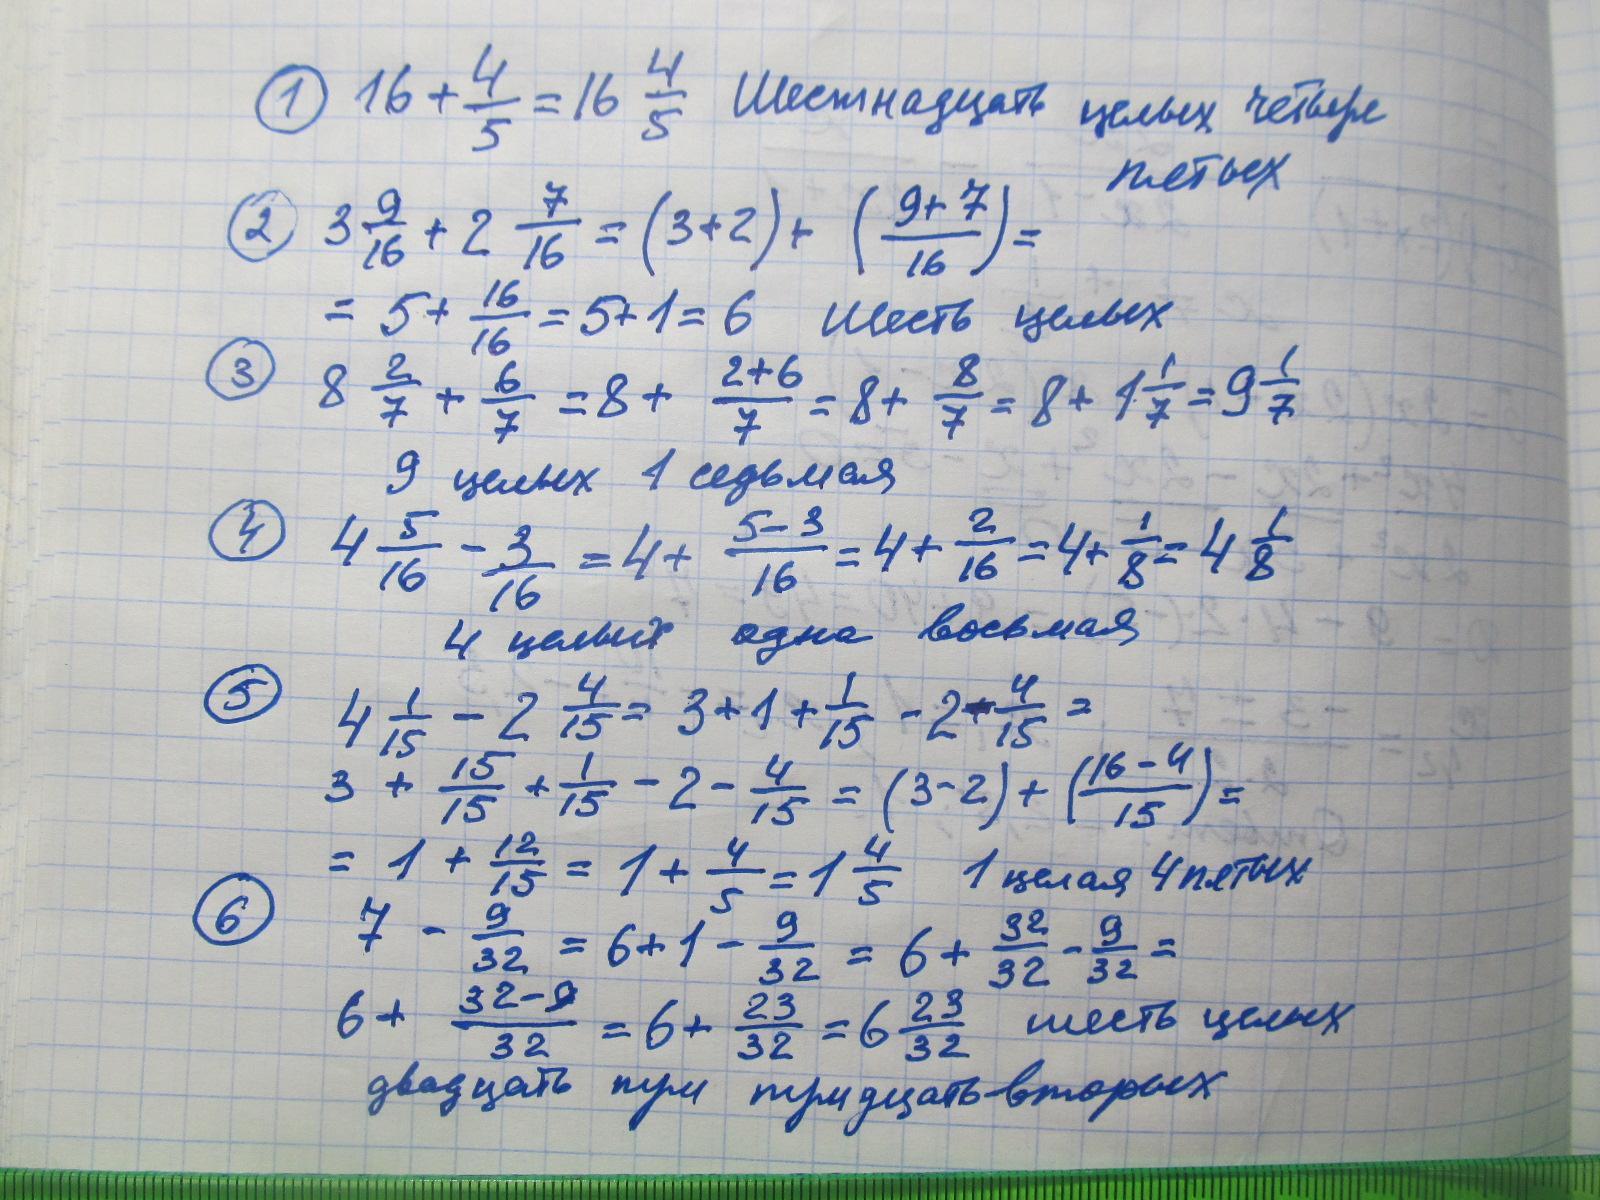 ① 16 + 4/5 = 16 4/5 Шестнадцать целых четыре
пятых
② 3 9/16 + 2 7/16 = (3+2) + (9+7/16) =
= 5 + 16/16 = 5+1 = 6 Шесть целых
③ 8 2/7 + 6/7 = 8 + 2+6/7 = 8 + 8/7 = 8 + 1 1/7 = 9 1/7
9 целых 1 седьмая
④ 4 5/16 - 3/16 = 4 + 5-3/16 = 4 + 2/16 = 4 + 1/8 = 4 1/8
4 целых одна восьмая
⑤ 4 1/15 - 2 4/15 = 3+1+1/15 - 2 - 4/15 =
3 + 15/15 + 1/15 - 2 - 4/15 = (3-2) + (16-4/15) =
= 1 + 12/15 = 1 + 4/5 = 1 4/5 1 целая 4 пятых
⑥ 7 - 9/32 = 6+1 - 9/32 = 6 + 32/32 - 9/32 =
6 + 32-9/32 = 6 + 23/32 = 6 23/32 шесть целых
двадцать три тридцать-вторых